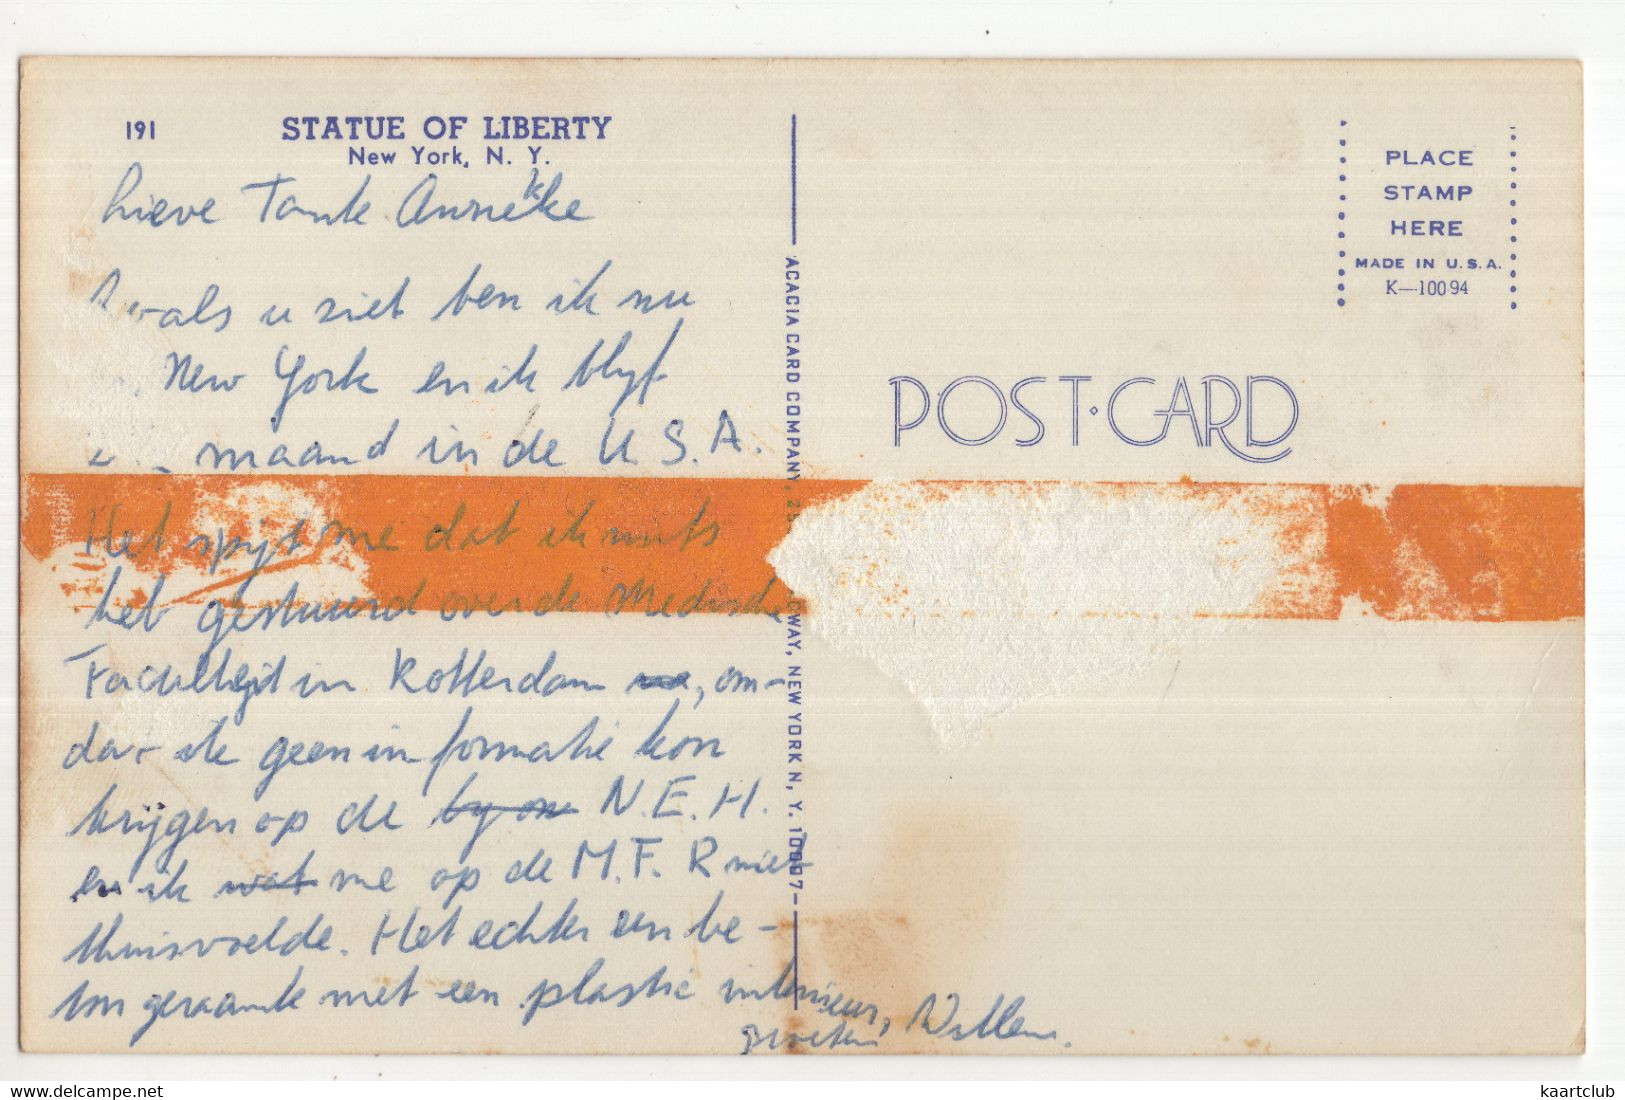 191
STATUE OF LIBERTY
New York, N. Y.
Lieve Tante Anneke
Zoals u ziet ben ik nu
New York en ik blijf
maand in de U.S.A.
Het spijt me dat ik niets
heb gestuurd over de Medische
Faculteit in Rotterdam, om-
dat ik geen informatie kon
krijgen op de N.E.H.
en ik me op de M.F.R niet
thuisvoelde. Het echter een be-
ton geraamte met een plastic interieur,
groeten Willem.
ACACIA CARD COMPANY, NEW YORK N. Y. 10007
POST·CARD
PLACE
STAMP
HERE
MADE IN U.S.A.
K—10094
kaartclub